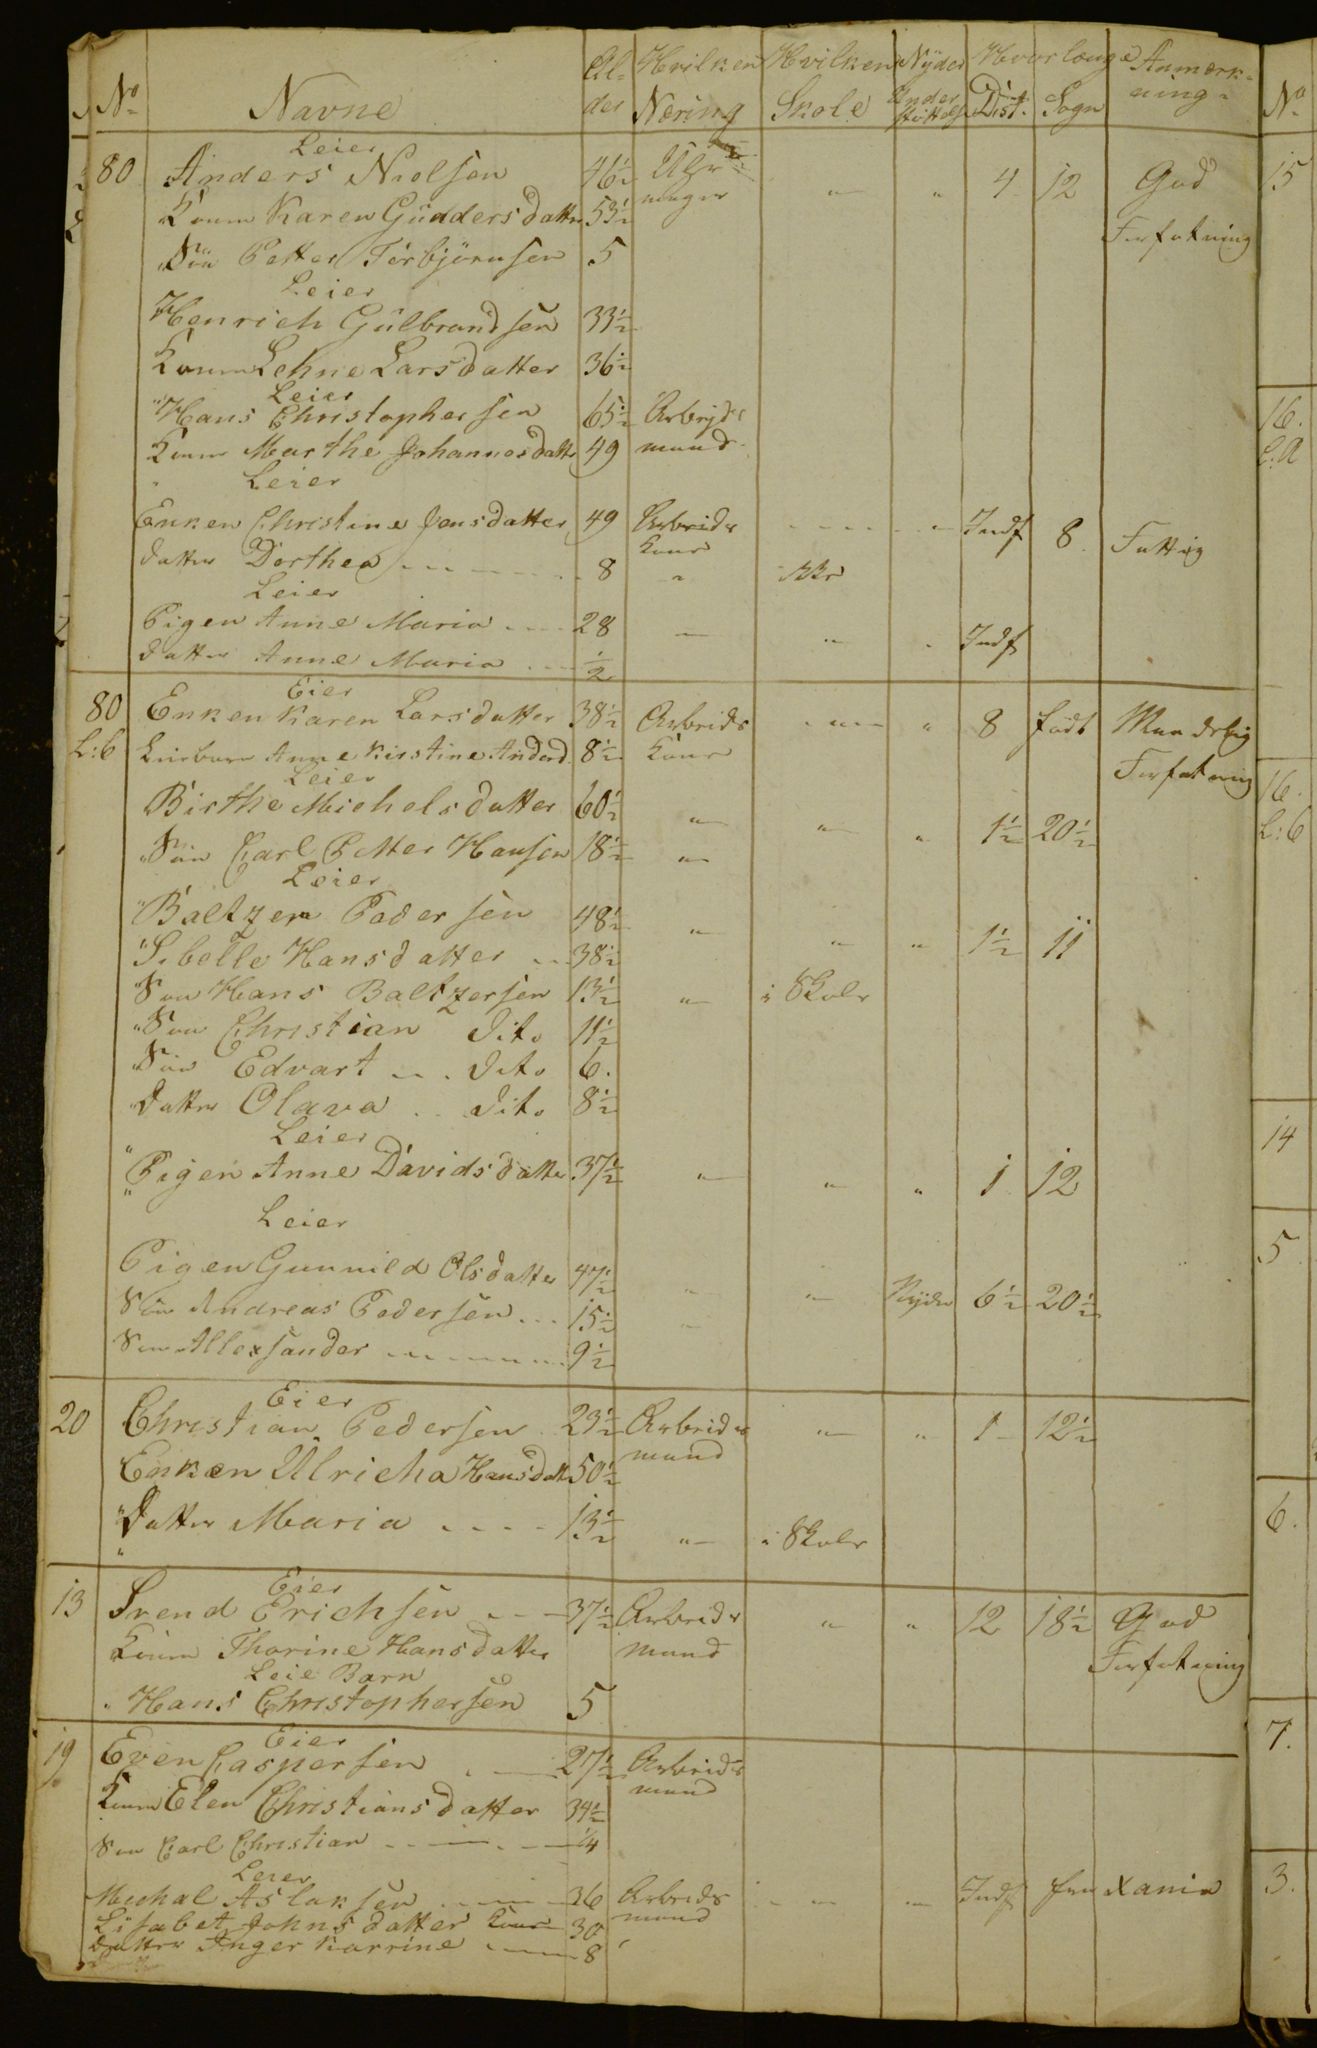 No Navne Alder Hvilken Næring Hvilken Skole Nyder Understøttelse Hvorlænge Dist. Sogn Anmærkning
Leier
80 Anders Nielsen 46½ " " 4 12 God
Konen Karen Gudders datter 53½ Forfatning
Søn Petter Torbjörnsen 5
Leier
Henrich Gulbrandsen 33½
Konen Lehne Larsdatter 36½
Leier
Hans Christophersen 65½ Arbejds
Konen Marthe Johannesdatter 49 mand
Leier
Enken Christine Jensdatter 49 Arbeids " Indf 8 Fattig
Kone
datter Dorthea 8 "
Leier
Pigen Anne Maria 28 " " " Indf
datter Anne Maria ½
Eier
80 Enken Karen Larsdatter 38½ Arbeids " " 8 født Maadelig
L:b Leiebarn Anne Kirstine Andersd 8½ Kone Forfatning
Leier
Birthe Michelsdatter 60½ " " " 1½ 20½
Søn Carl Petter Hansen 18½ "
Leier
Baltzer Pedersen 48½ " " " 1½ 11
Sibelle Hansdatter 38½
Søn Hans Baltzersen 13½ " i Skole
Søn Christian dito 11½
Søn Edvart dito 6.
datter Olava dito 8½
Leier
Pigen Anne Davidsdatter 37½ " " " 1 12
Leier
Pigen Gunnild Olsdatter 47½ " " Nyder 6½ 20½
Søn Andreas Pedersen 15½ "
Søn Allexsander 9½
Eier
20 Christian Pedersen 23½ Arbeids " " 1 12½
mand
Enken Ulricha Hansdatt 50½
Datter Maria 13½ " i Skole
Eier
13 Svend Erichsen 37½ Arbeids " " 12 18½ God
Konen Thorine Hansdatter mand Forfatning
Leie Barn
Hans Christophersen 5
Eier
19 Even Caspersen 27½ Arbeids
mand
Konen Elen Christiansdatter 34½
Søn Carl Christian ¼
Leier
Michal Aslaksen 36 Arbeids " " Indf fra Xania
mand
Lisabet Johnsdatter Kone 30
datter Inger Karrine 8
No
15
16.
L:A
16.
L:b
14
5
6.
7.
3.